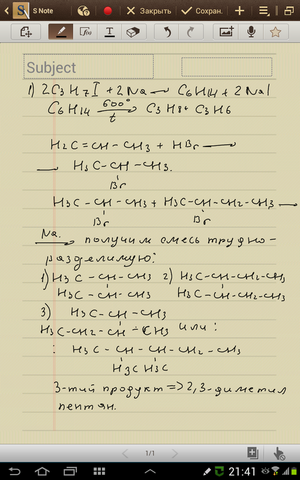 S Note
Закрыть
Сохран.
Subject
1) 2C3H7I + 2Na → C6H14 + 2NaI
C6H14 600° t → C3H8 + C3H6
H2C = CH – CH3 + HBr →
→ H3C – CH – CH3.
Br
H3C – CH – CH3 + H3C – CH – CH2 – CH3 →
Br Br
Na. → получим смесь трудно-
разделимую:
1) H3C – CH – CH3 2) H3C – CH – CH2 – CH3
H3C – CH – CH3 H3C – CH – CH2 – CH3
3) H3C – CH – CH3
H3C – CH2 – CH – CH3 или:
: H3C – CH – CH – CH2 – CH3
H3C H3C
3-тий продукт => 2,3-диметил
пентан.
1/1
21:41